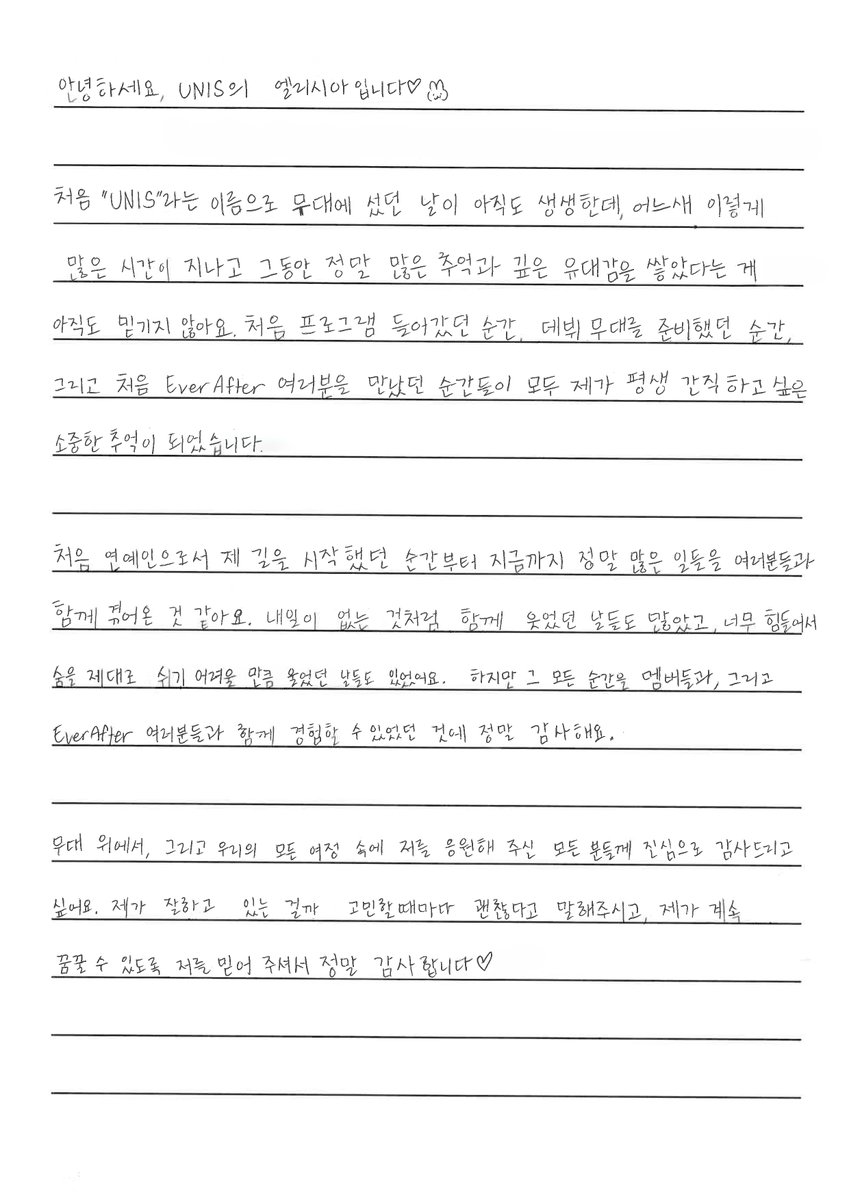 안녕하세요, UNIS의 엘리시아입니다♡
처음 "UNIS"라는 이름으로 무대에 섰던 날이 아직도 생생한데, 어느새 이렇게
많은 시간이 지나고 그동안 정말 많은 추억과 깊은 유대감을 쌓았다는 게
아직도 믿기지 않아요. 처음 프로그램 들어갔던 순간, 데뷔 무대를 준비했던 순간,
그리고 처음 EverAfter 여러분을 만났던 순간들이 모두 제가 평생 간직하고 싶은
소중한 추억이 되었습니다.
처음 연예인으로서 제 길을 시작했던 순간부터 지금까지 정말 많은 일들을 여러분들과
함께 겪어온 것 같아요. 내일이 없는 것처럼 함께 웃었던 날들도 많았고, 너무 힘들어서
숨을 제대로 쉬기 어려울 만큼 울었던 날들도 있었어요. 하지만 그 모든 순간을 멤버들과, 그리고
EverAfter 여러분들과 함께 경험할 수 있었던 것에 정말 감사해요.
무대 위에서, 그리고 우리의 모든 여정 속에 저를 응원해 주신 모든 분들께 진심으로 감사드리고
싶어요. 제가 잘하고 있는 걸까 고민할 때마다 괜찮다고 말해주시고, 제가 계속
꿈꿀 수 있도록 저를 믿어 주셔서 정말 감사합니다♡